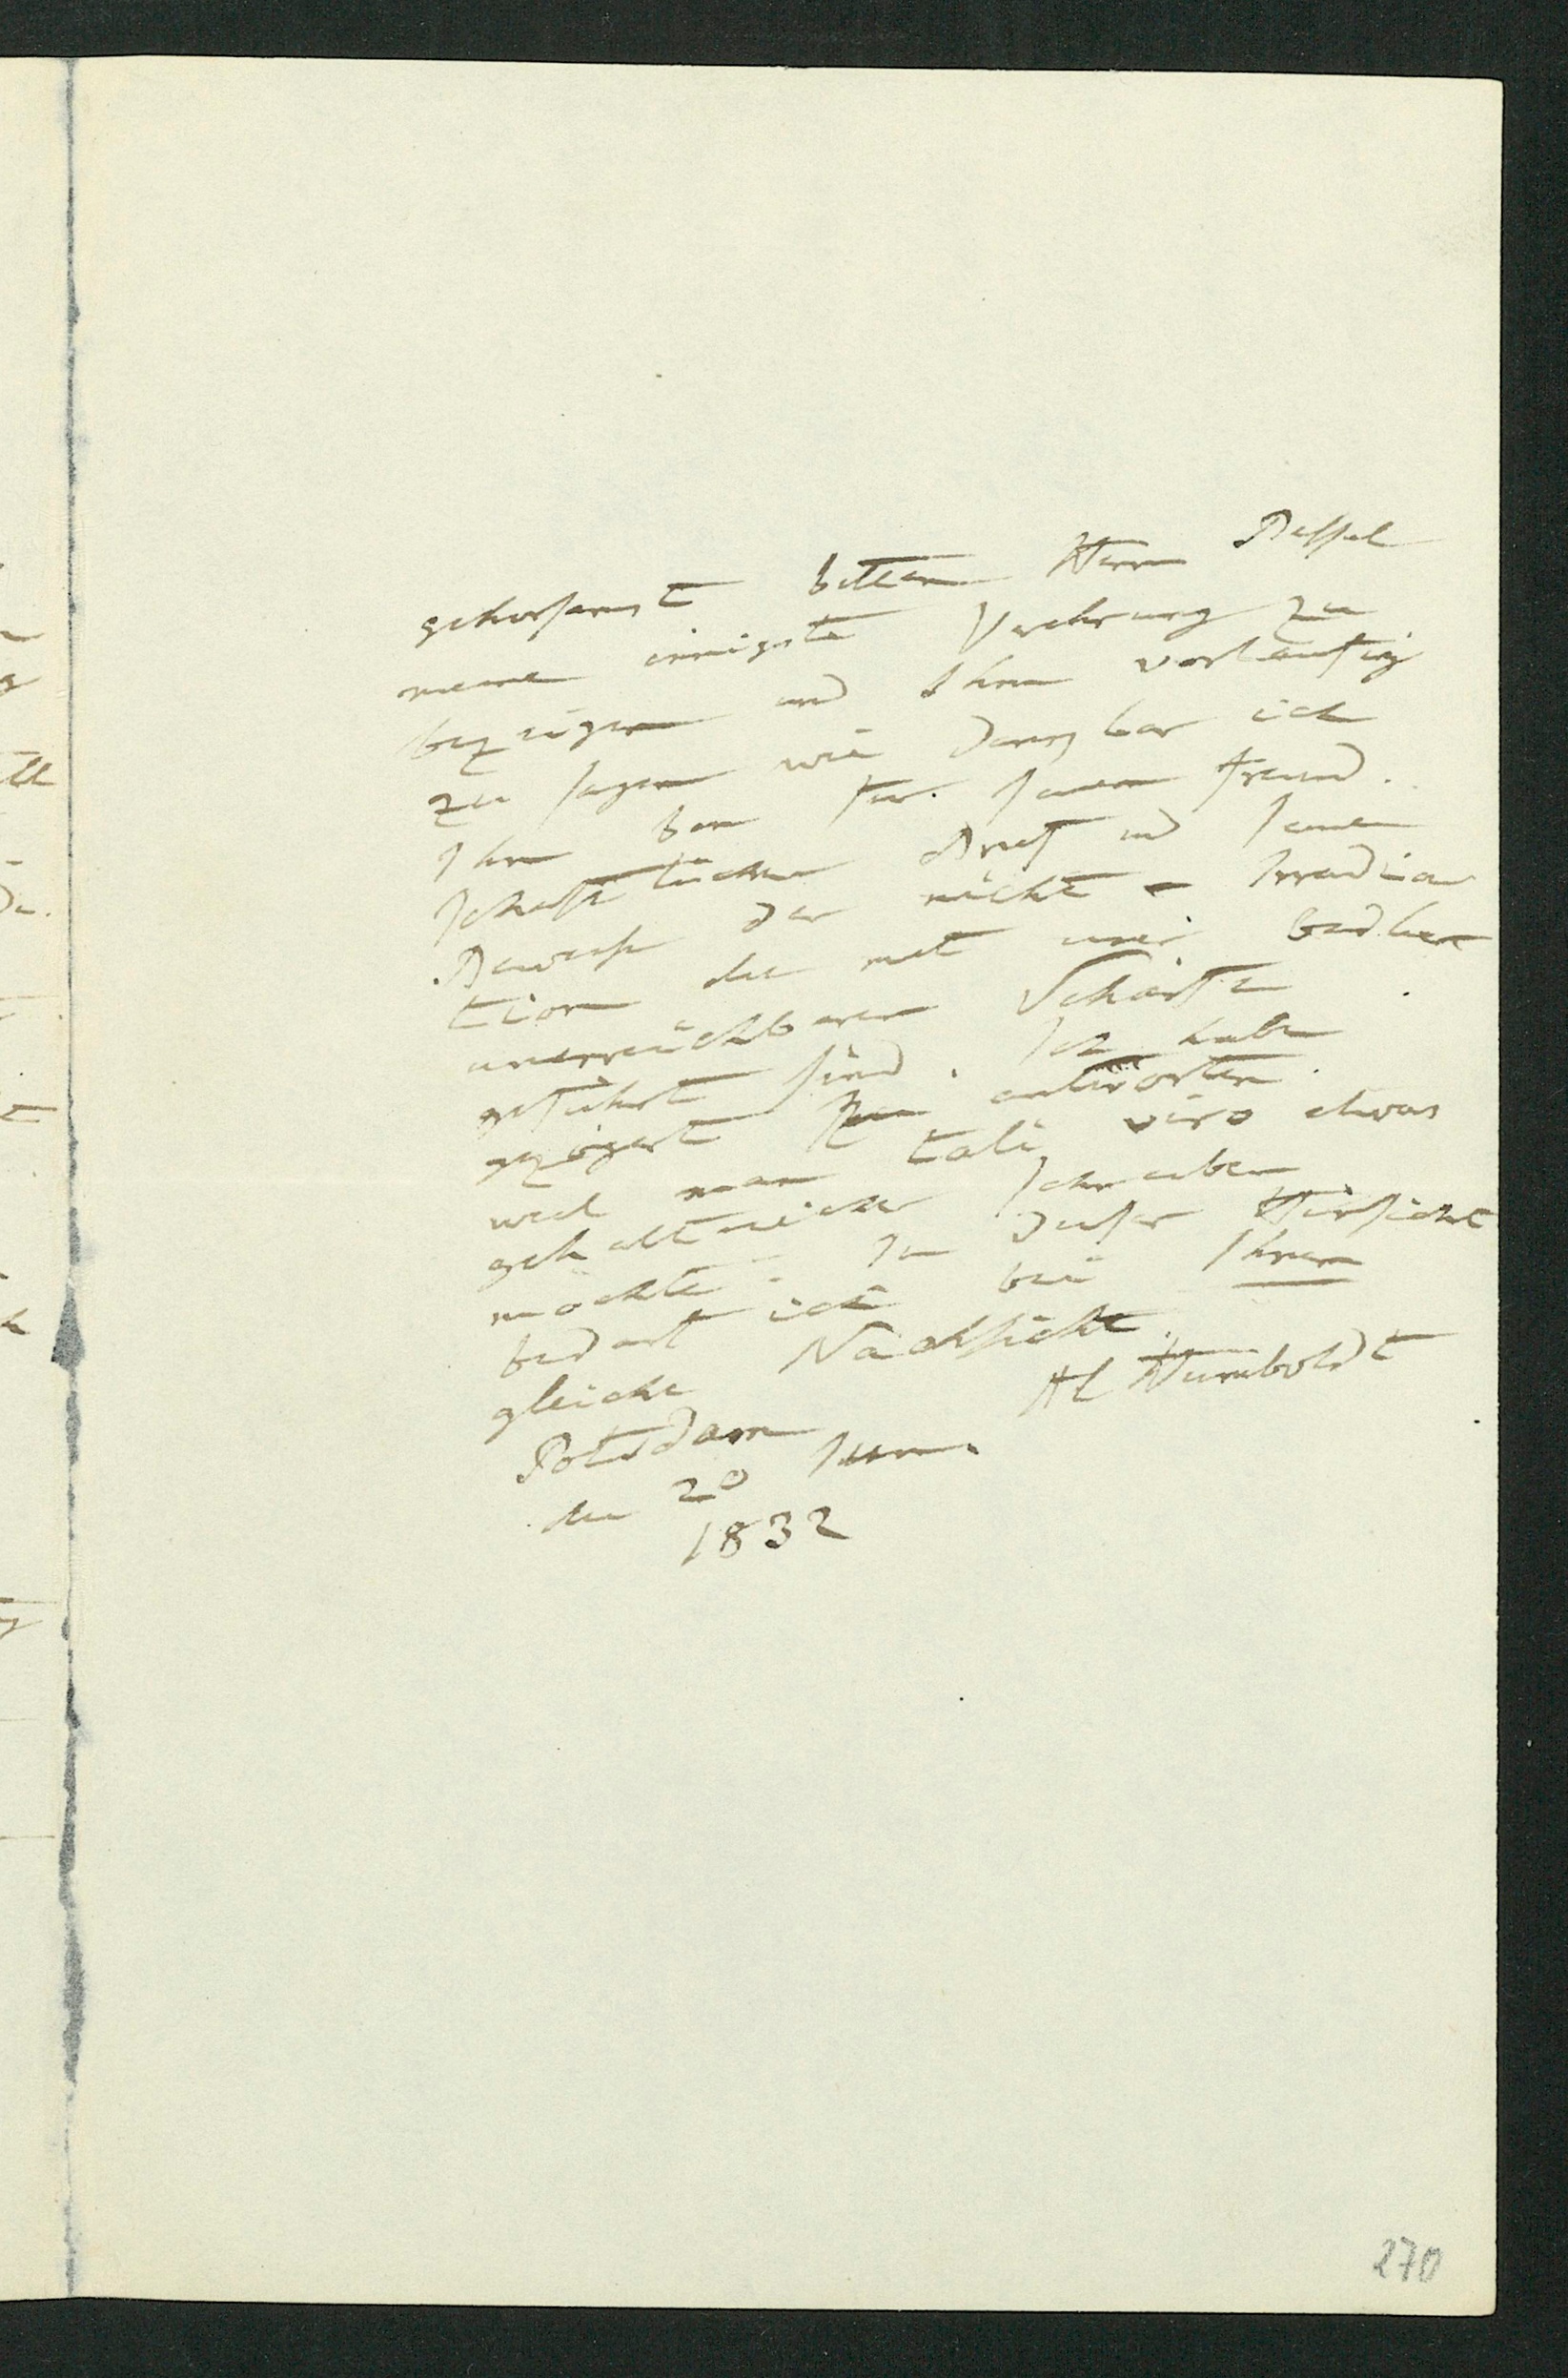 gehorsamst bitten Herrn Bessel
meine innigste Verehrung zu
bezeigen und Ihm vorläufig
zu sagen wie dankbar ich
Ihm bin für seinen freund-
schaftlichen Brief und seine
Beweise der nicht-Irradia
tion die mit
unerreichbarer Schärfe
geführt sind. Ich habe
gezögert zu antworten
weil man tali viro etwas
gehaltreiches schreiben
mochte. In dieser Hinsicht
bedarf ich bei Ihnen
gleiche Nachsicht.
Al Humboldt
Potsdam
den 20 Jun.
1832
270